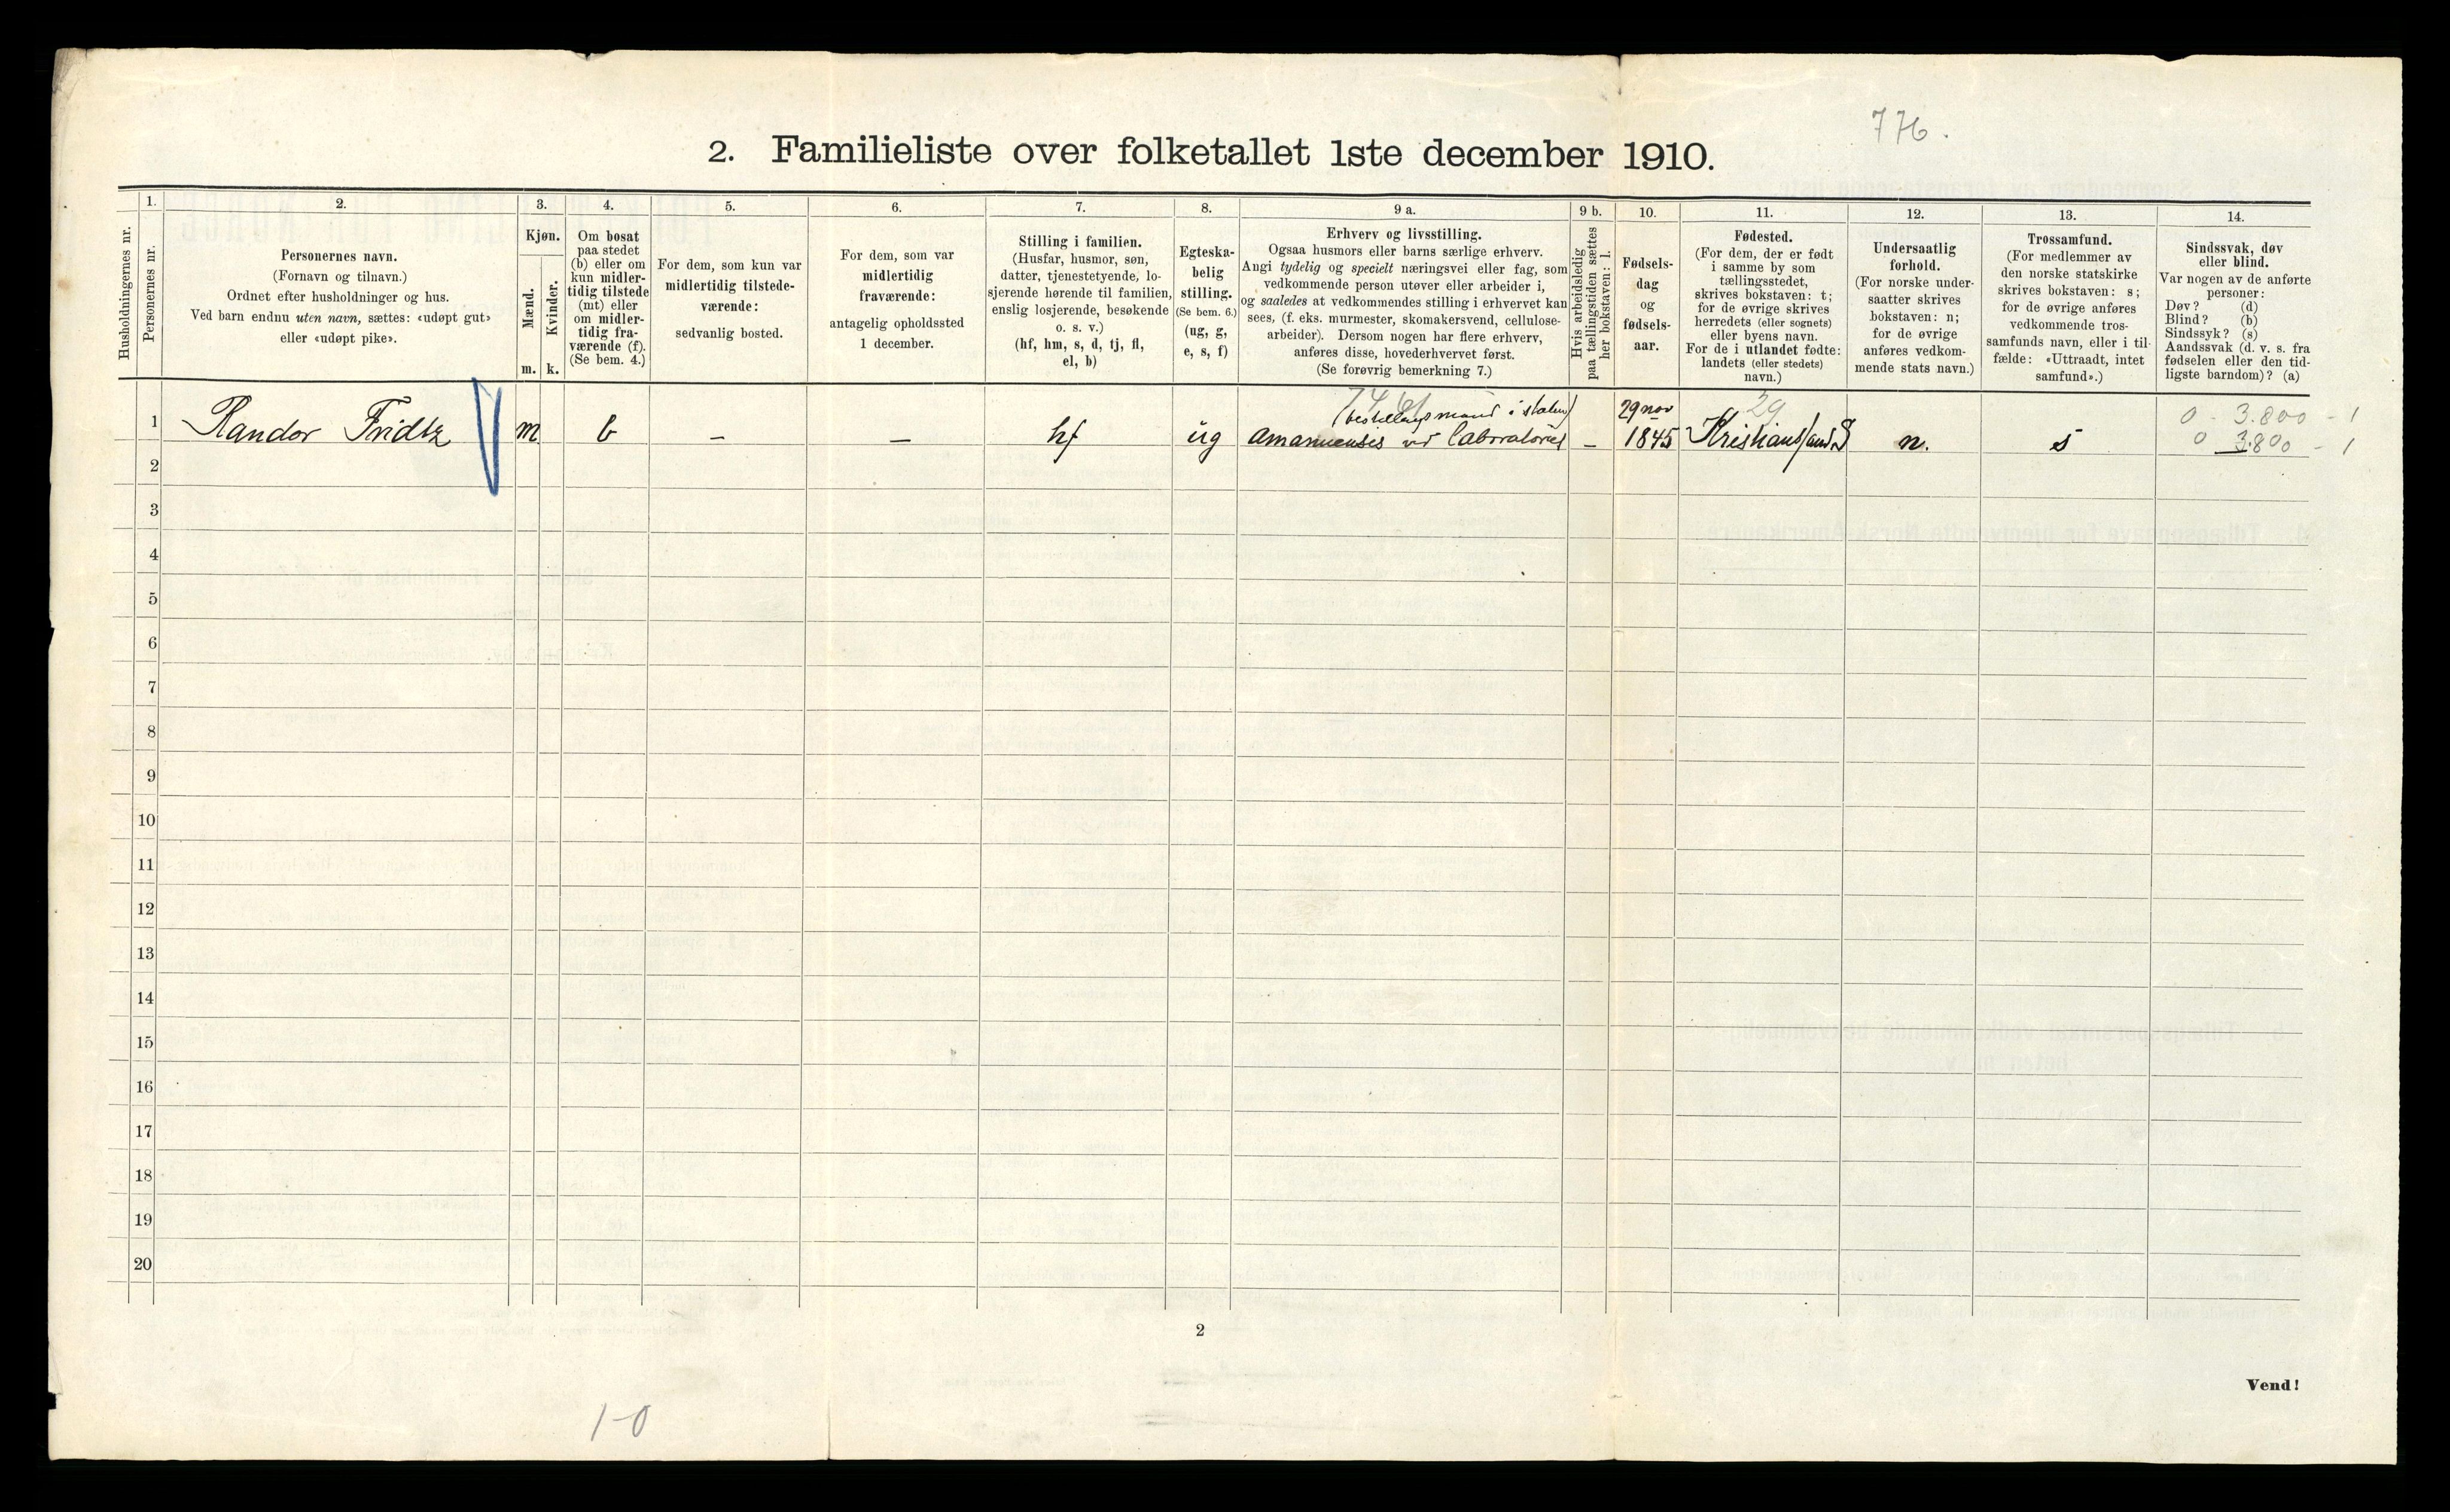 776.
2. Familieliste over folketallet 1ste december 1910.
Husholdningernes nr.
1.
Personernes nr.
2.
Personernes navn.
(Fornavn og tilnavn.)
Ordnet efter husholdninger og hus.
Ved barn endnu uten navn, sættes: «udøpt gut»
eller «udøpt pike».
3.
Kjøn.
Mænd.
Kvinder.
m. k.
4.
Om bosat
paa stedet
(b) eller om
kun midler-
tidig tilstede
(mt) eller
om midler-
tidig fra-
værende (f).
(Se bem. 4.)
5.
For dem, som kun var
midlertidig tilstede-
værende:
sedvanlig bosted.
6.
For dem, som var
midlertidig
fraværende:
antagelig opholdssted
1 december.
7.
Stilling i familien.
(Husfar, husmor, søn,
datter, tjenestetyende, lo-
sjerende hørende til familien,
enslig losjerende, besøkende
o. s. v.)
(hf, hm, s, d, tj, fl,
el, b)
8.
Egteska-
belig
stilling.
(Se bem. 6.)
(ug, g,
e, s, f)
9 a.
Erhverv og livsstilling.
Ogsaa husmors eller barns særlige erhverv.
Angi tydelig og specielt næringsvei eller fag, som
vedkommende person utøver eller arbeider i,
og saaledes at vedkommendes stilling i erhvervet kan
sees, (f. eks. murmester, skomakersvend, cellulose-
arbeider). Dersom nogen har flere erhverv,
anføres disse, hovederhvervet først.
(Se forøvrig bemerkning 7.)
9 b.
Hvis arbeidsledig
paa tællingstiden sættes
her bokstaven: l.
10.
Fødsels-
dag
og
fødsels-
aar.
11.
Fødested.
(For dem, der er født
i samme by som
tællingsstedet,
skrives bokstaven: t;
for de øvrige skrives
herredets (eller sognets)
eller byens navn.
For de i utlandet fødte:
landets (eller stedets)
navn.)
12.
Undersaatlig
forhold.
(For norske under-
saatter skrives
bokstaven: n;
for de øvrige
anføres vedkom-
mende stats navn.)
13.
Trossamfund.
(For medlemmer av
den norske statskirke
skrives bokstaven: s;
for de øvrige anføres
vedkommende tros-
samfunds navn, eller i til-
fælde: «Uttraadt, intet
samfund».)
14.
Sindssvak, døv
eller blind.
Var nogen av de anførte
personer:
Døv? (d)
Blind? (b)
Sindssyk? (s)
Aandssvak (d. v. s. fra
fødselen eller den tid-
ligste barndom)? (a)
(bestillingsmand i staten) 29 nov 29 0 - 3.800 - 1
1 Randor Fridtz m b - - hf ug amanuensis v. Laboratoriet - 1845 Kristiansand S n. s 0 3.800 - 1
2
3
4
5
6
7
8
9
10
11
12
13
14
15
16
17
18
19
20
2
Vend!
1-0